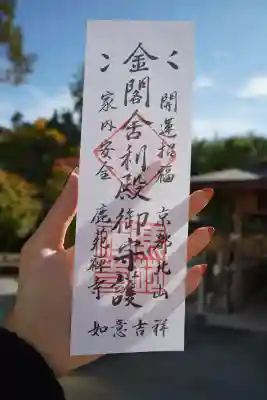 金閣舎利殿御守護
開運招福
家内安全
京都北山
鹿苑禅寺
如意吉祥